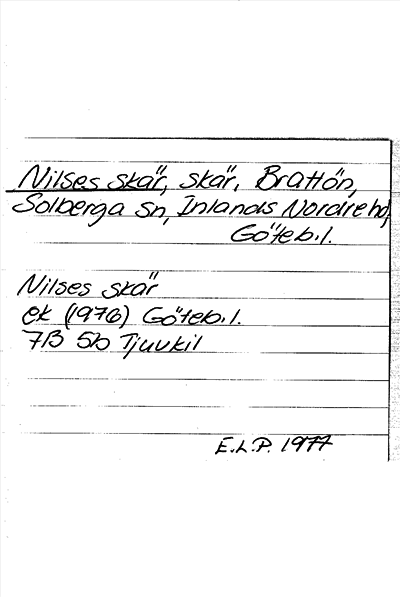 Nilses skär, skär, Brattön,
Solberga sn, Inlands Nordre hd,
Göteb.l.
Nilses skär
ek (1976) Göteb.l.
7B 5b Tjuvkil
E.L.P. 1977